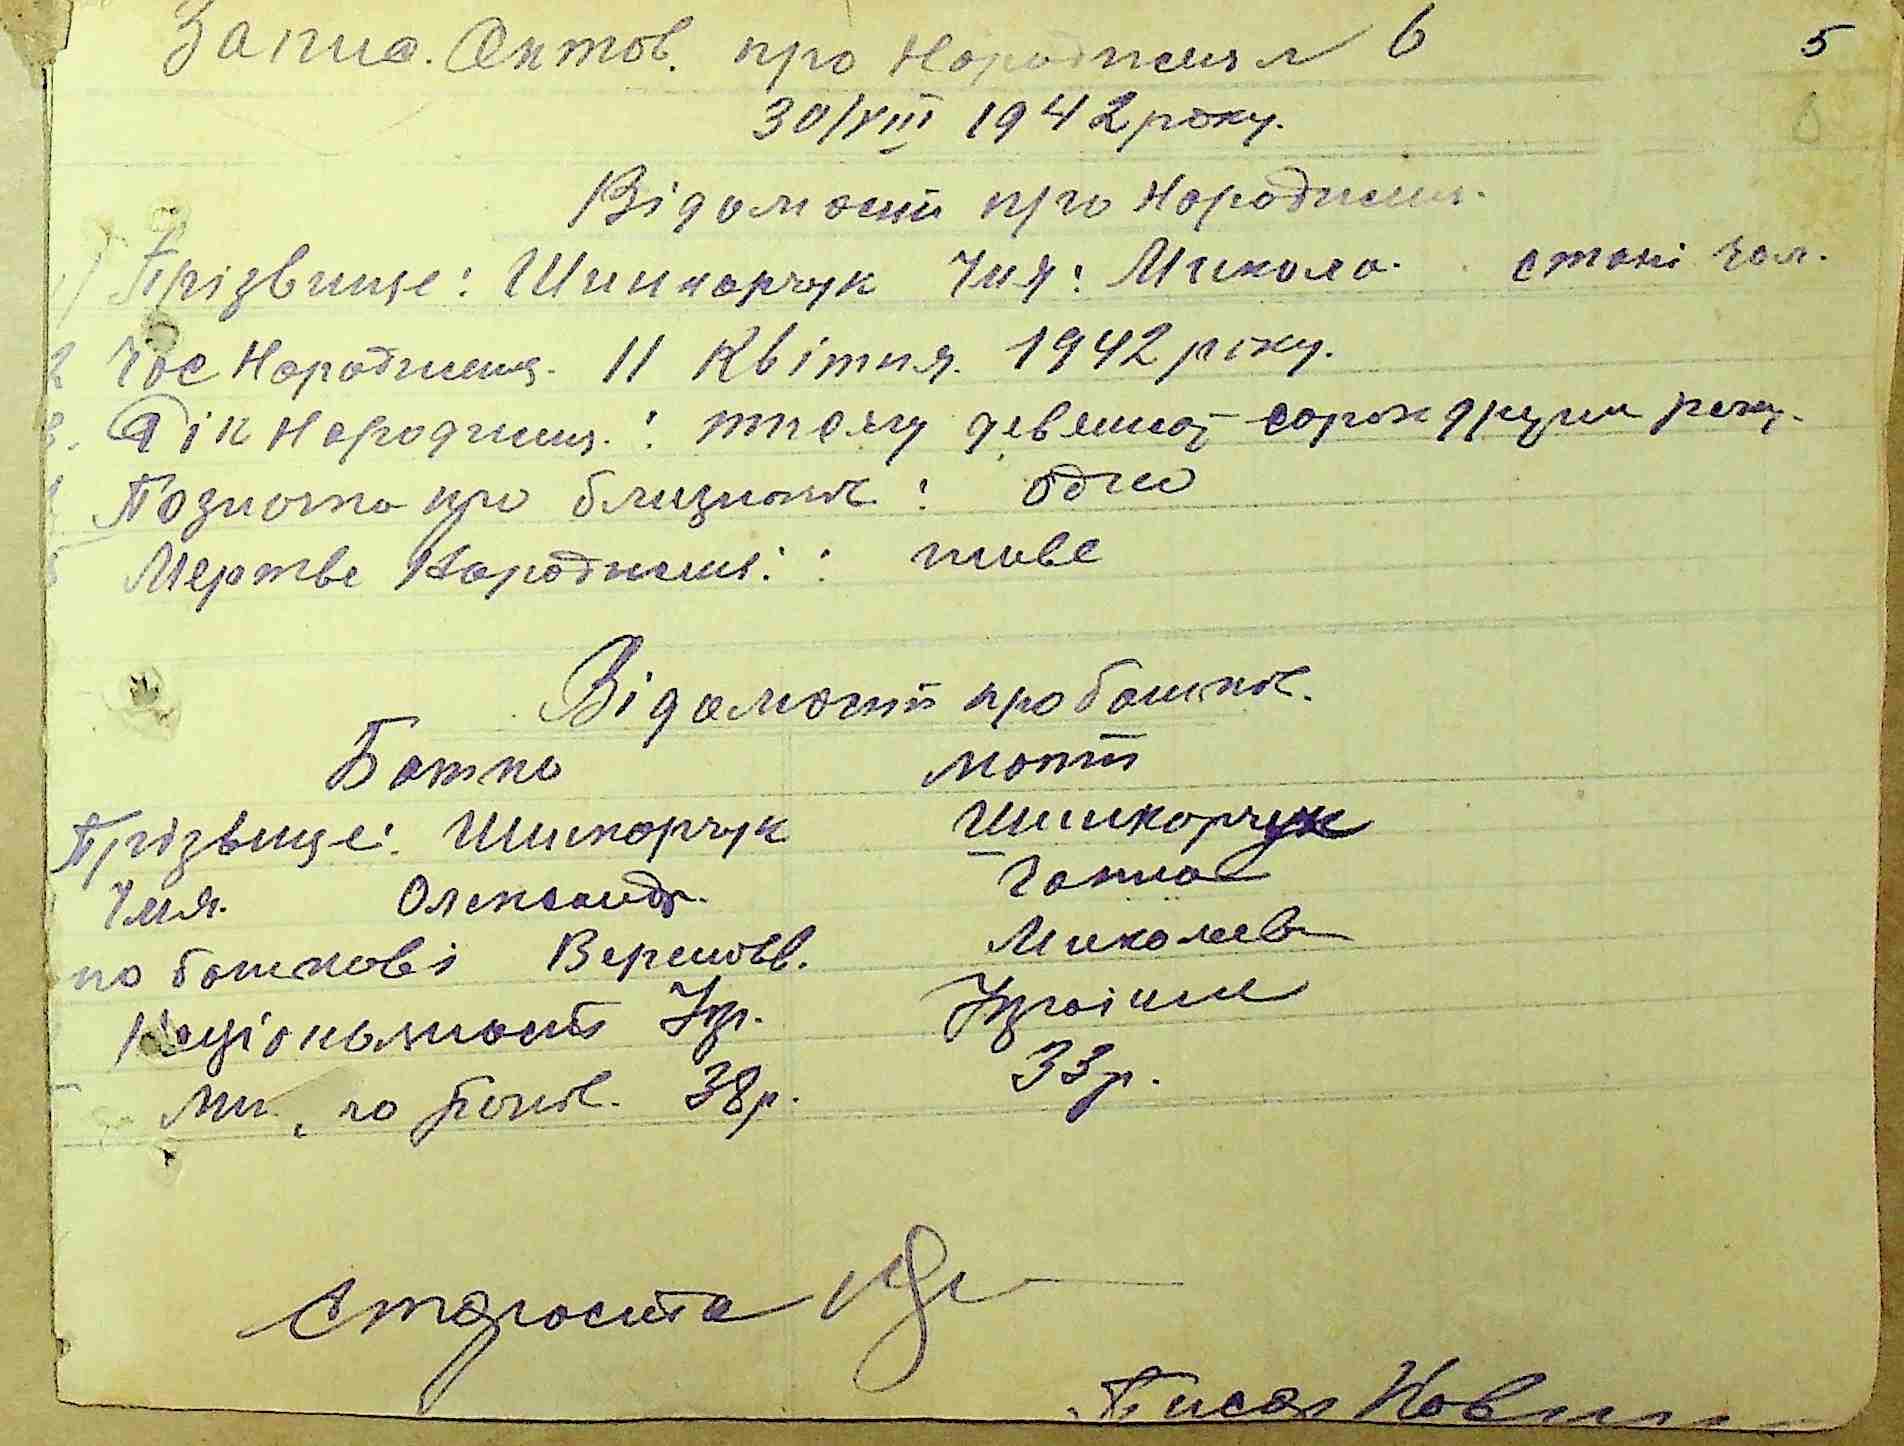 Запис. Актов. про Народження 6
5
30/VIII 1942 року.
Відомости про Народження.
1) Прізвище: Шинкарчук Імя: Микола. стать чол.
2 Час Народження. 11 Квітня. 1942 року.
3. Рік Народження.: тисячу девятсот сорок другий року.
Познотка про близнят: одно
Мертве Народження: живе
Відомости про батьків.
Батько мати
Прізвище: Шинкарчук Шинкарчук
Імя. Олександр. Ганна
по батькові Миколаєв
Національность Укр. Украінка
38р. 33р.
Староста
Писар